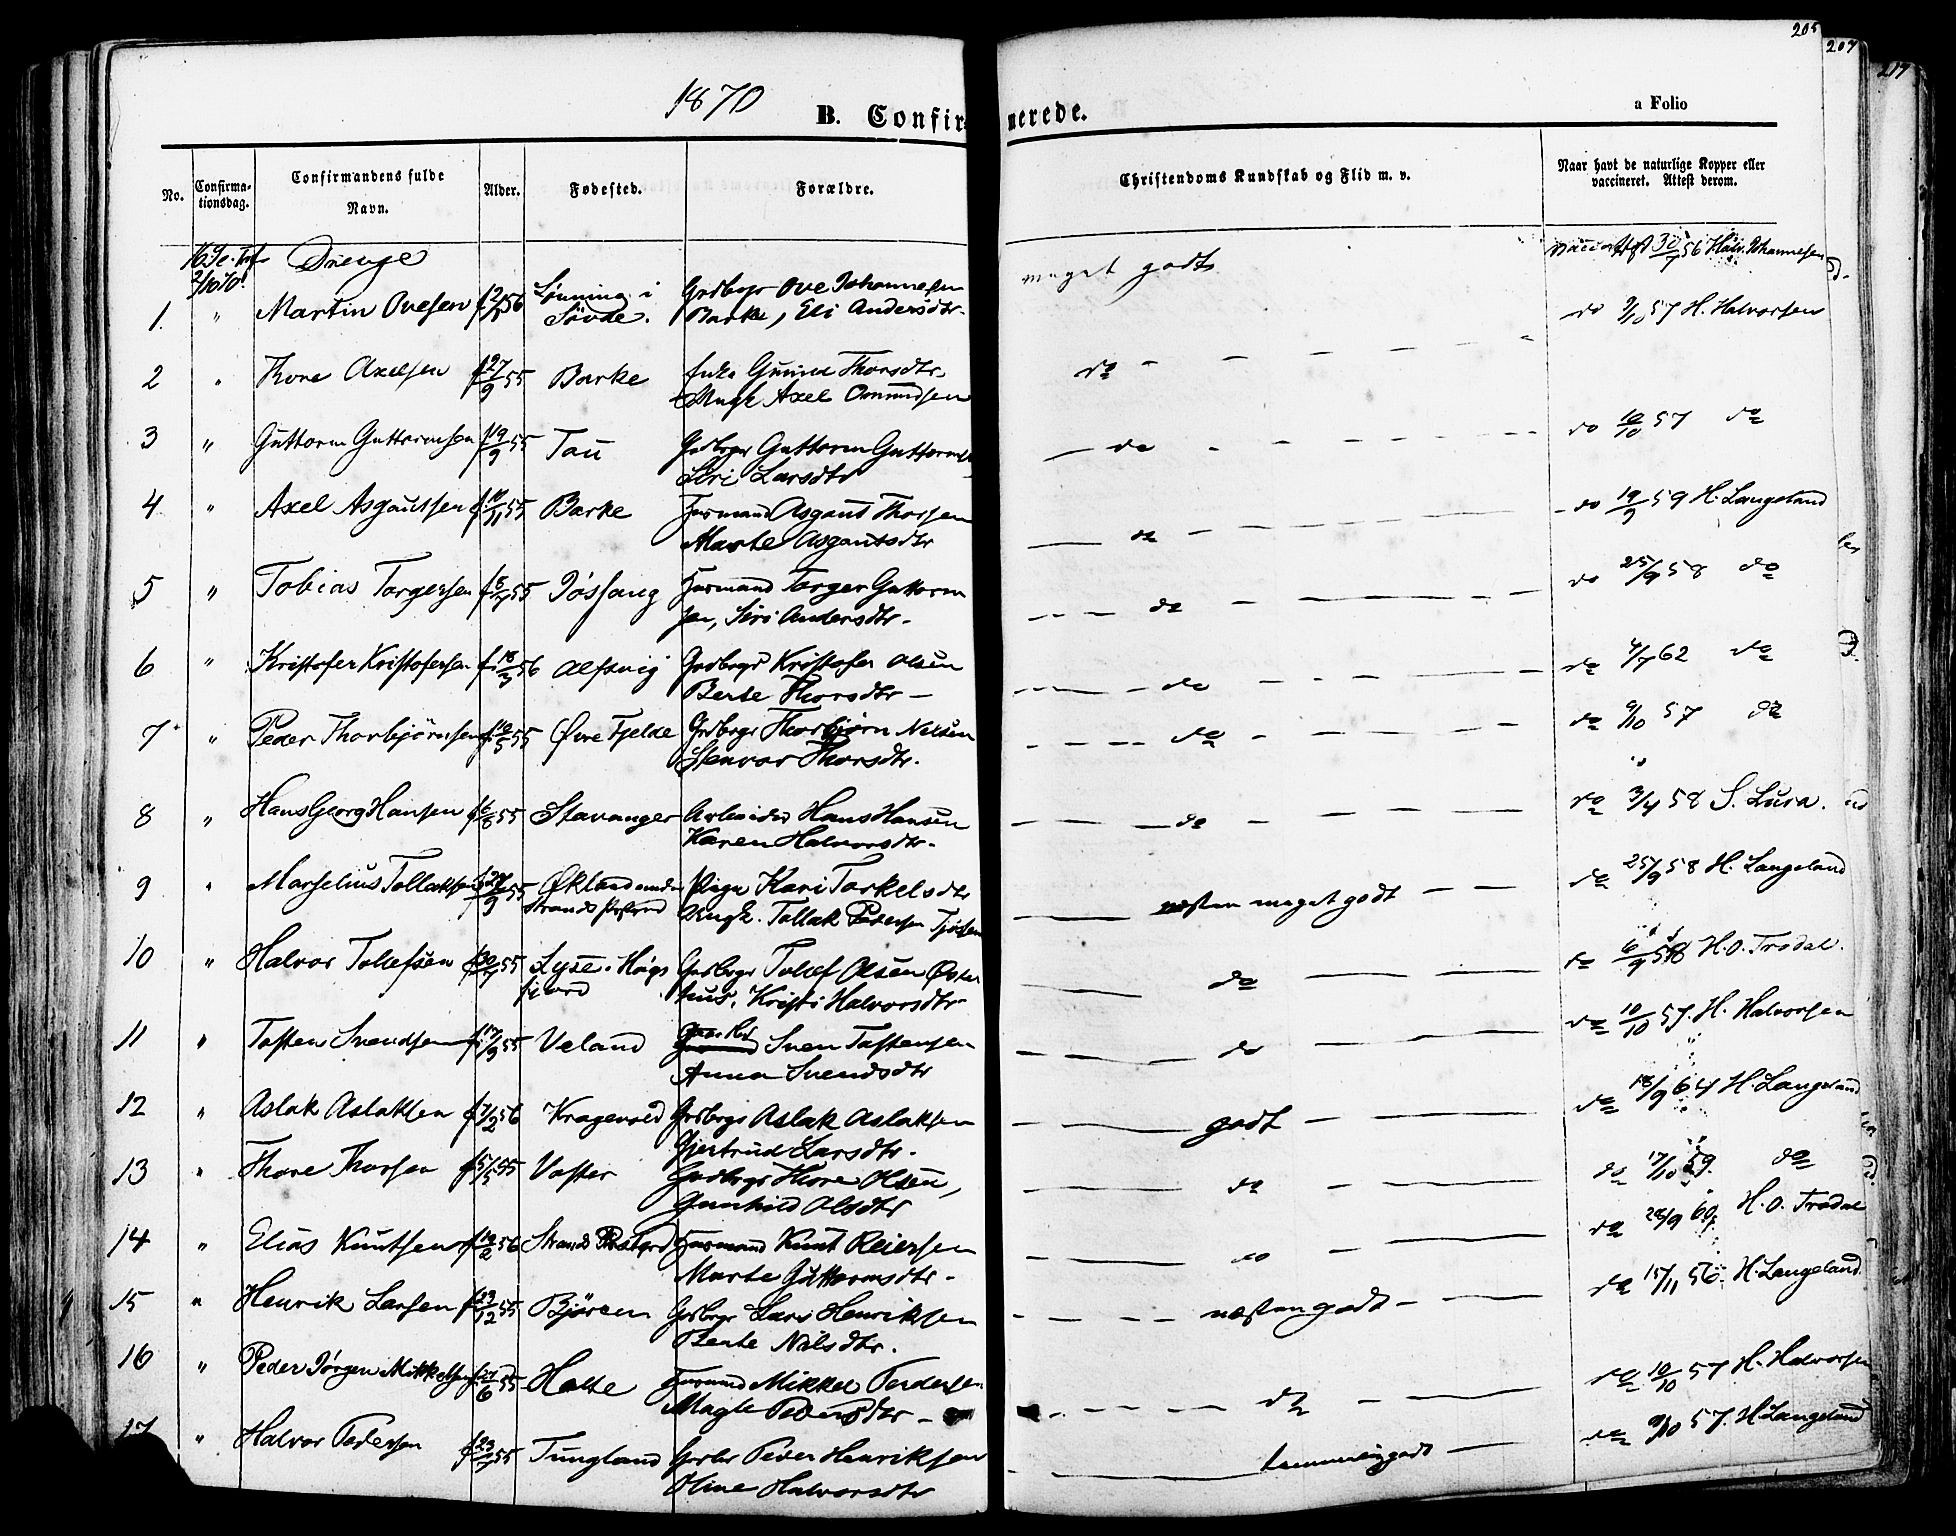 205
207
217
1870
B. Confirmerede.
a Folio
No.
Confirma-
tionsdag.
Confirmandens fulde
Navn.
Alder.
Fødested.
Forældre.
Christendoms Kundskab og Flid m. v.
Naar havt de naturlige Kopper eller
vaccineret. Attest derom.
Drenge
2/10 70
1. " Martin Ovesen f 2/5 56 Lønning i Grdbrgr Ove Johannesen meget godt 30/7 56 Halv. Johannesen
Søvde. Barke, Eli Andersdtr.
2 " Thore Axelsen f 27/9 55 Barke Enke Gunild Thorsdtr. do - - - - do 9/10 57 H. Halvorsen
Axel Omundsen
3 " Guttorm Guttormsen f 19/9 55 Tau Grdbrgr Guttorm Guttormsen do - - - - do 10/10 57 do
Siri Larsdtr
4 " Axel Asgautsen f 10/11 55 Barke Husmand Asgaut Thorsen do - - - - do 19/9 59 H. Langeland
Marte Asgautsdtr
5 " Tobias Torgersen f 8/7 55 Jøssang Husmand Torger Guttorm do - - - - do 25/9 58 do
sen, Siri Andersdtr.
6 " Kristofer Kristofersen f 18/3 56 Alfsvig Grdbrgr Kristofer Olsen do - - - - do 4/7 62 do
Berte Thorsdtr -
7 " Peder Thorbjørnsen f 19/5 55 Øvre Fjelde Grdbrgr Thorbjørn Nilsen do - - - - do 9/10 57 do
Stenvor Thorsdtr.
8 " Hans Georg Hansen f 6/8 55 Stavanger Arbeider Hans Hansen do - - - - do 3/4 58 S. Lura.
Karen Halvorsdtr.
9 " Marselius Tollaksen f 27/9 55 Økland Pige Kari Torkelsdtr næsten meget godt - - do 25/9 58 H. Langeland
Strands Prstgd Ungk. Tollak Pedersen
10 " Halvor Tollefsen f 30/7 55 Lyse. Høgs Grdbrgr Tollef Olsen Øvre do - - - do 6/9 58 H. O. Trodal.
fjord hus. Kristi Halvorsdtr
11 " Tosten Svendsen f 17/9 55 Veland Sven Tostensen do - - - do 10/10 57. H. Halvorsen
Anna Svendsdtr
12 " Aslak Aslaksen f 7/2 56 Kragevold Grdbrgr Aslak Aslaksen godt - - - do 18/9 64 H. Langeland
Gjertrud Larsdtr.
13 " Thore Thorsen f 15/5 55 Voster Grdbrgr Thore Olsen, do - - - do 17/10 59. do
Gunhild Olsdtr
14 " Elias Knutsen f 19/2 56 Strands Prstgrd Husmand Knut Reiersen do - - - do 28/9 60. H. O. Trodal
Marte Guttormsdtr -
15 " Henrik Larsen f 13/12 55 Bjøreen Grdbrgr Lars Henriksen næsten godt - - - do 15/11 56 H. Langeland
Berte Nilsdtr.
16 " Peder Jørgen Mikkelsen f 27/6 55 Holte Husmand Mikkel Pedersen do - - - do 10/10 57 H. Halvorsen
Magle Pedersdtr -
17 " Halvor Pedersen f 23/7 55 Tungland Grdbr Peder Henriksen temmelig godt - - do 9/10 57. H Langeland
Oline Halvorsdtr